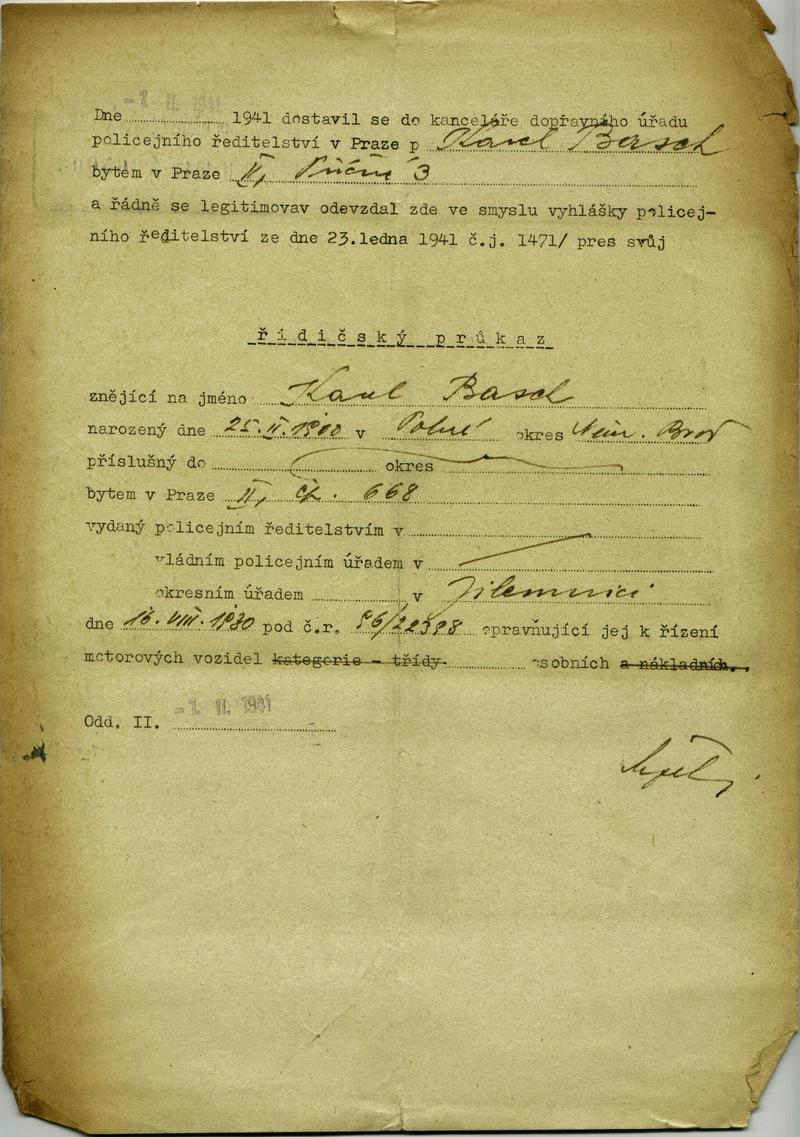 -1. II. 1941
Dne.......................... 1941 dostavil se do kanceláře dopravního úřadu
policejního ředitelství v Praze p Karel Basch
bytem v Praze II, Příčná 3
a řádně se legitimovav odevzdal zde ve smyslu vyhlášky policej-
ního ředitelství ze dne 23.ledna 1941 č.j. 1471/ pres svůj
řidičský průkaz
znějící na jméno Karel Basch
narozený dne 25.II.1900 v Polné okres Něm. Brod
příslušný do ........................ okres ........................
bytem v Praze II, čp. 668
vydaný policejním ředitelstvím v ........................
vládním policejním úřadem v ........................
okresním úřadem ............ v Jilemnici
dne 16.VIII.1930 pod č.r. 96/22398 opravňující jej k řízení
motorových vozidel kategorie - třídy............ osobních a nákladních.
-1. II. 1941
Odd. II. ........................